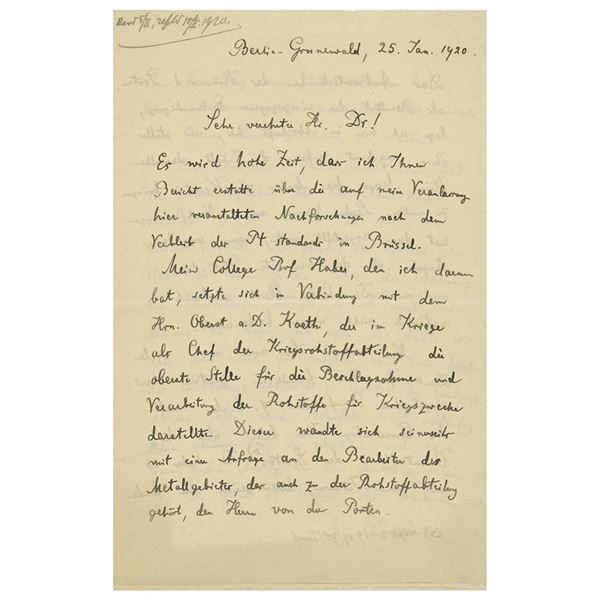 Recd 5/II, refld 10/II. 1920.
Berlin-Grunewald, 25. Jan. 1920.
Sehr verehrter Hr. Dr.!
Es wird hohe Zeit, dass ich Ihnen
Bericht erstatte über die auf meine Veranlassung
hier veranstalteten Nachforschungen nach dem
Verbleib der Pt standards in Brüssel.
Mein College Prof Haber, den ich darum
bat, setzte sich in Verbindung mit dem
Hrn. Oberst a. D. Koeth, der im Kriege
als Chef der Kriegsrohstoffabteilung die
oberste Stelle für die Beschlagnahme und
Verarbeitung der Rohstoffe für Kriegszwecke
darstellte. Dieser wandte sich seinerseits
mit einer Anfrage an den Bearbeiter des
Metallgebietes, der auch zu der Rohstoffabteilung
gehört, den Herrn von der Porten.